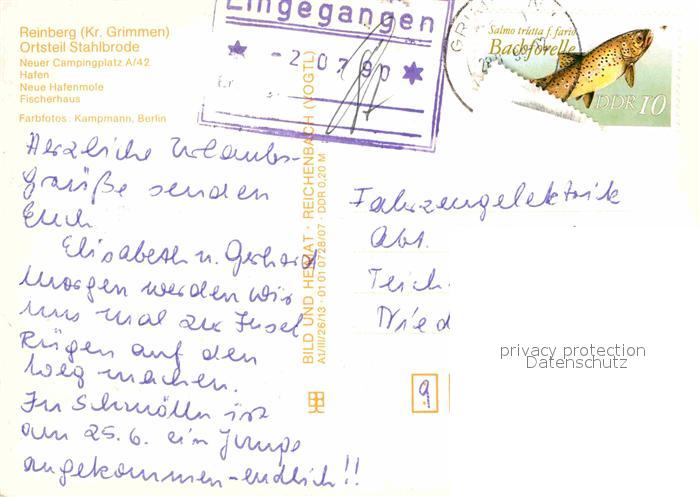 Reinberg (Kr. Grimmen)
Ortsteil Stahlbrode
Neuer Campingplatz A/42
Hafen
Neue Hafenmole
Fischerhaus
Farbfotos: Kampmann, Berlin
Eingegangen
* - 2 07 90 *
Salmo trutta f. fario
Bachforelle
DDR 10
Herzliche Urlaubs-
grüße senden
Euch
Elisabeth u. Gerhard
Morgen werden wir
uns mal zur Insel
Rügen auf den
Weg machen.
In Schmölln ist
am 25.6. ein Junge
angekommen - endlich!!
BILD UND HEIMAT · REICHENBACH (VOGTL)
A1/III/26/13 · 01 01 0728/07 · DDR 0,20 M
Fahrzeugelektrik
Abt.
Teich
Nied
9
privacy protection
Datenschutz